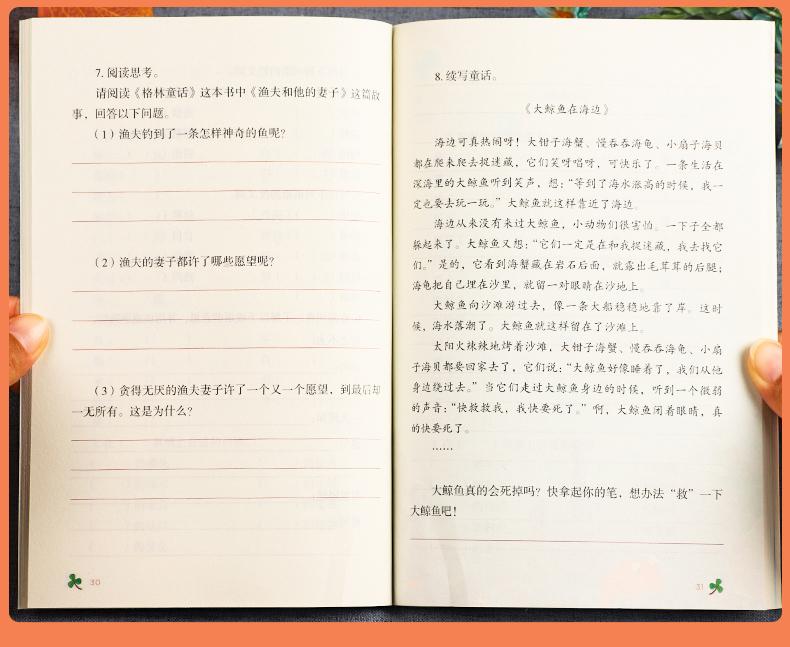 7. 阅读思考。
请阅读《格林童话》这本书中《渔夫和他的妻子》这篇故
事，回答以下问题。
（1）渔夫钓到了一条怎样神奇的鱼呢？
（2）渔夫的妻子都许了哪些愿望呢？
（3）贪得无厌的渔夫妻子许了一个又一个愿望，到最后却
一无所有。这是为什么？
30
8. 续写童话。
《大鲸鱼在海边》
海边可真热闹呀！大钳子海蟹、慢吞吞海龟、小扇子海贝
都在爬来爬去捉迷藏，它们笑呀唱呀，可快乐了。一条生活在
深海里的大鲸鱼听到笑声，想：“等到了海水涨高的时候，我一
定也要去玩一玩。”大鲸鱼就这样靠近了海边。
海边从来没有来过大鲸鱼，小动物们很害怕。一下子全都
躲起来了。大鲸鱼又想：“它们一定是在和我捉迷藏，我去找它
们。”是的，它看到海蟹藏在岩石后面，就露出毛茸茸的后腿；
海龟把自己埋在沙里，就留一对眼睛在沙地上。
大鲸鱼向沙滩游过去，像一条大船稳稳地靠了岸。这时
候，海水落潮了。大鲸鱼就这样留在了沙滩上。
太阳火辣辣地烤着沙滩，大钳子海蟹、慢吞吞海龟、小扇
子海贝都要回家去了，它们说：“大鲸鱼好像睡着了，我们从他
身边绕过去。”当它们走过大鲸鱼身边的时候，听到一个微弱
的声音：“快救救我，我快要死了。”啊，大鲸鱼闭着眼睛，真
的快要死了。
……
大鲸鱼真的会死掉吗？快拿起你的笔，想办法“救”一下
大鲸鱼吧！
31